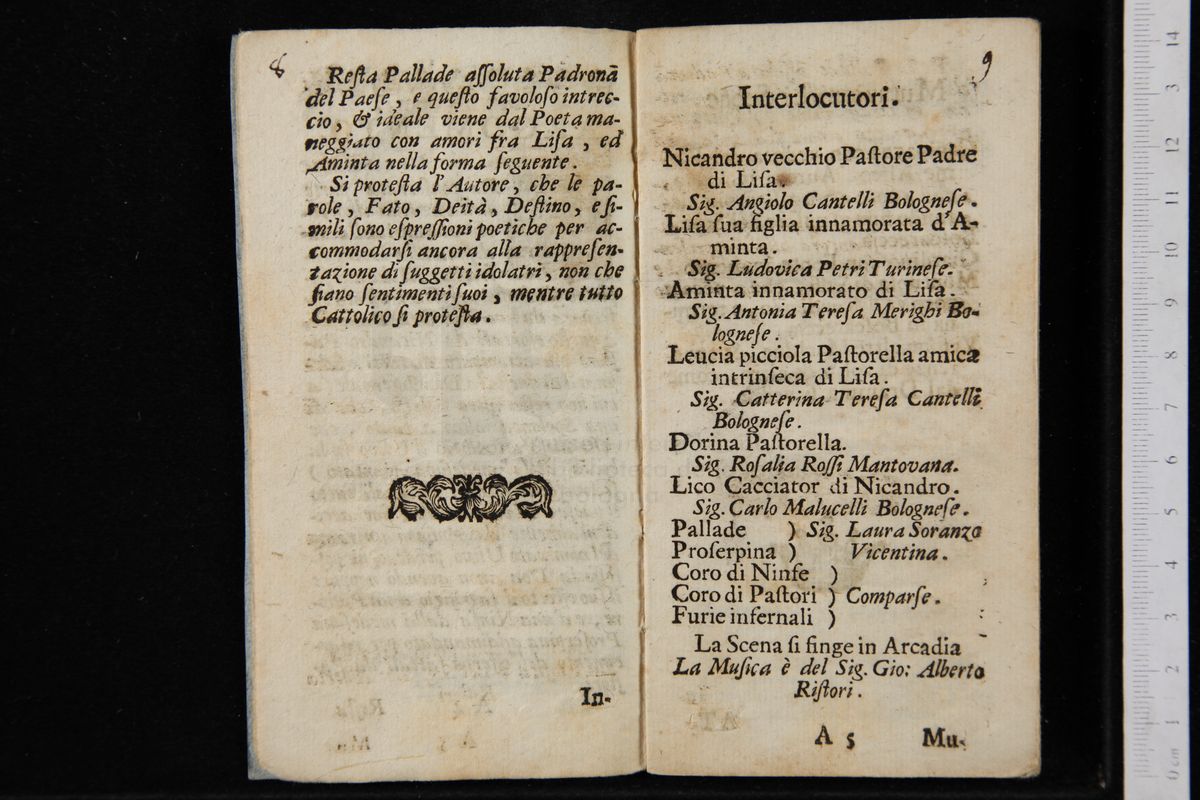 8
Reſta Pallade aſſoluta Padronā
del Paeſe, e queſto favoloſo intrec-
cio, & ideale viene dal Poeta ma-
neggiato con amori fra Liſa, ed
Aminta nella forma ſeguente.
Si proteſta l'Autore, che le pa-
role, Fato, Deità, Deſtino, e ſi-
mili ſono eſpreſſioni poetiche per ac-
commodarſi ancora alla rappreſen-
tazione di ſuggetti idolatri, non che
ſiano ſentimenti ſuoi, mentre tutto
Cattolico ſi proteſta.
In-
9
Interlocutori.
Nicandro vecchio Paſtore Padre
di Liſa.
Sig. Angiolo Cantelli Bologneſe.
Liſa ſua figlia innamorata d'A-
minta.
Sig. Ludovica Petri Turineſe.
Aminta innamorato di Liſa.
Sig. Antonia Tereſa Merighi Bo-
logneſe.
Leucia picciola Paſtorella amica
intrinſeca di Liſa.
Sig. Catterina Tereſa Cantelli
Bologneſe.
Dorina Paſtorella.
Sig. Roſalia Roſſi Mantovana.
Lico Cacciator di Nicandro.
Sig. Carlo Malucelli Bologneſe.
Pallade ) Sig. Laura Soranzo
Proſerpina ) Vicentina.
Coro di Ninfe )
Coro di Paſtori ) Comparſe.
Furie infernali )
La Scena ſi finge in Arcadia
La Muſica è del Sig. Gio: Alberto
Riſtori.
A 5 Mu-
0 cm 1 2 3 4 5 6 7 8 9 10 11 12 3 14